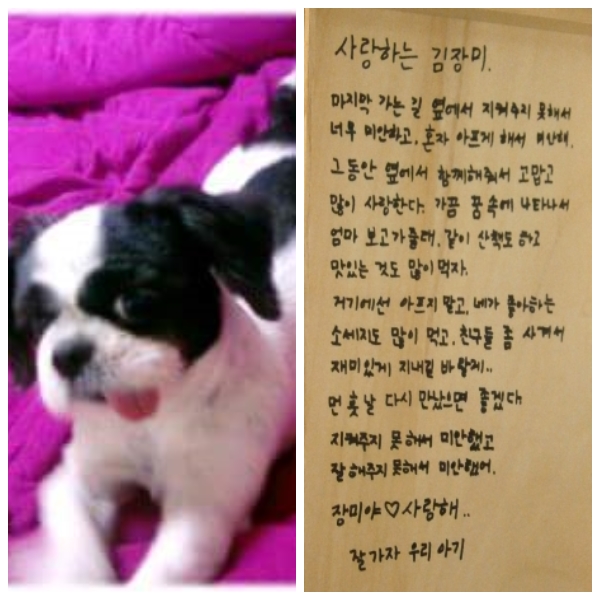 사랑하는 김장미.
마지막 가는 길 옆에서 지켜주지 못해서
너무 미안하고, 혼자 아프게 해서 미안해.
그동안 옆에서 함께해줘서 고맙고
많이 사랑한다. 가끔 꿈속에 나타나서
엄마 보고가줄래. 같이 산책도 하고
맛있는 것도 많이 먹자.
거기에선 아프지 말고, 네가 좋아하는
소세지도 많이 먹고, 친구들 좀 사겨서
재미있게 지내길 바랄게..
먼 훗날 다시 만났으면 좋겠다.
지켜주지 못해서 미안했고
잘해주지 못해서 미안했어.
장미야♡사랑해..
잘가자 우리 아기